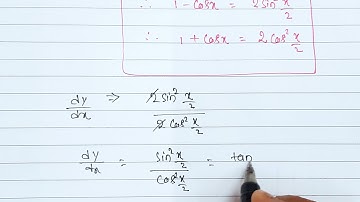 ∴ 1 - cosx = 2sin² x/2
∴ 1 + cosx = 2cos² x/2
dy/dx ⇒ 2sin² x/2 / 2cos² x/2
dy/dx = sin² x/2 / cos² x/2 = tan